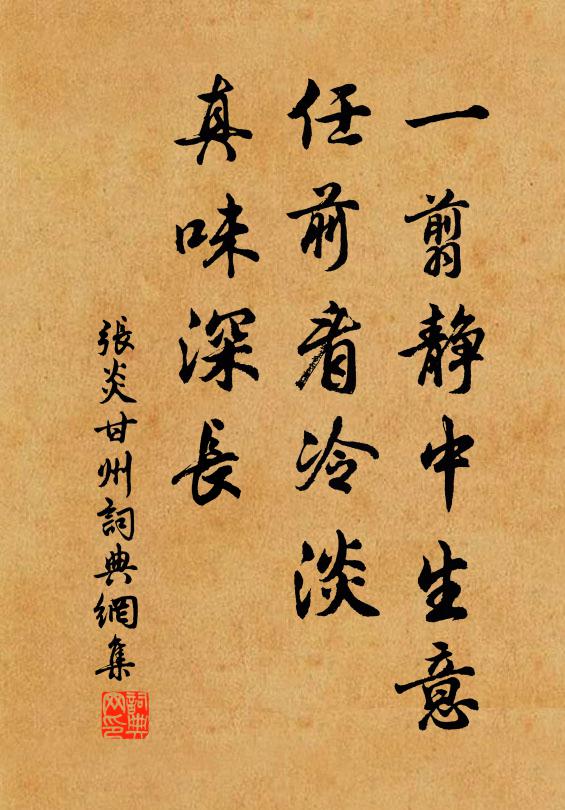 一翦静中生意
任前看冷淡
真味深長
張炎甘州詞典網集
詞典
网印